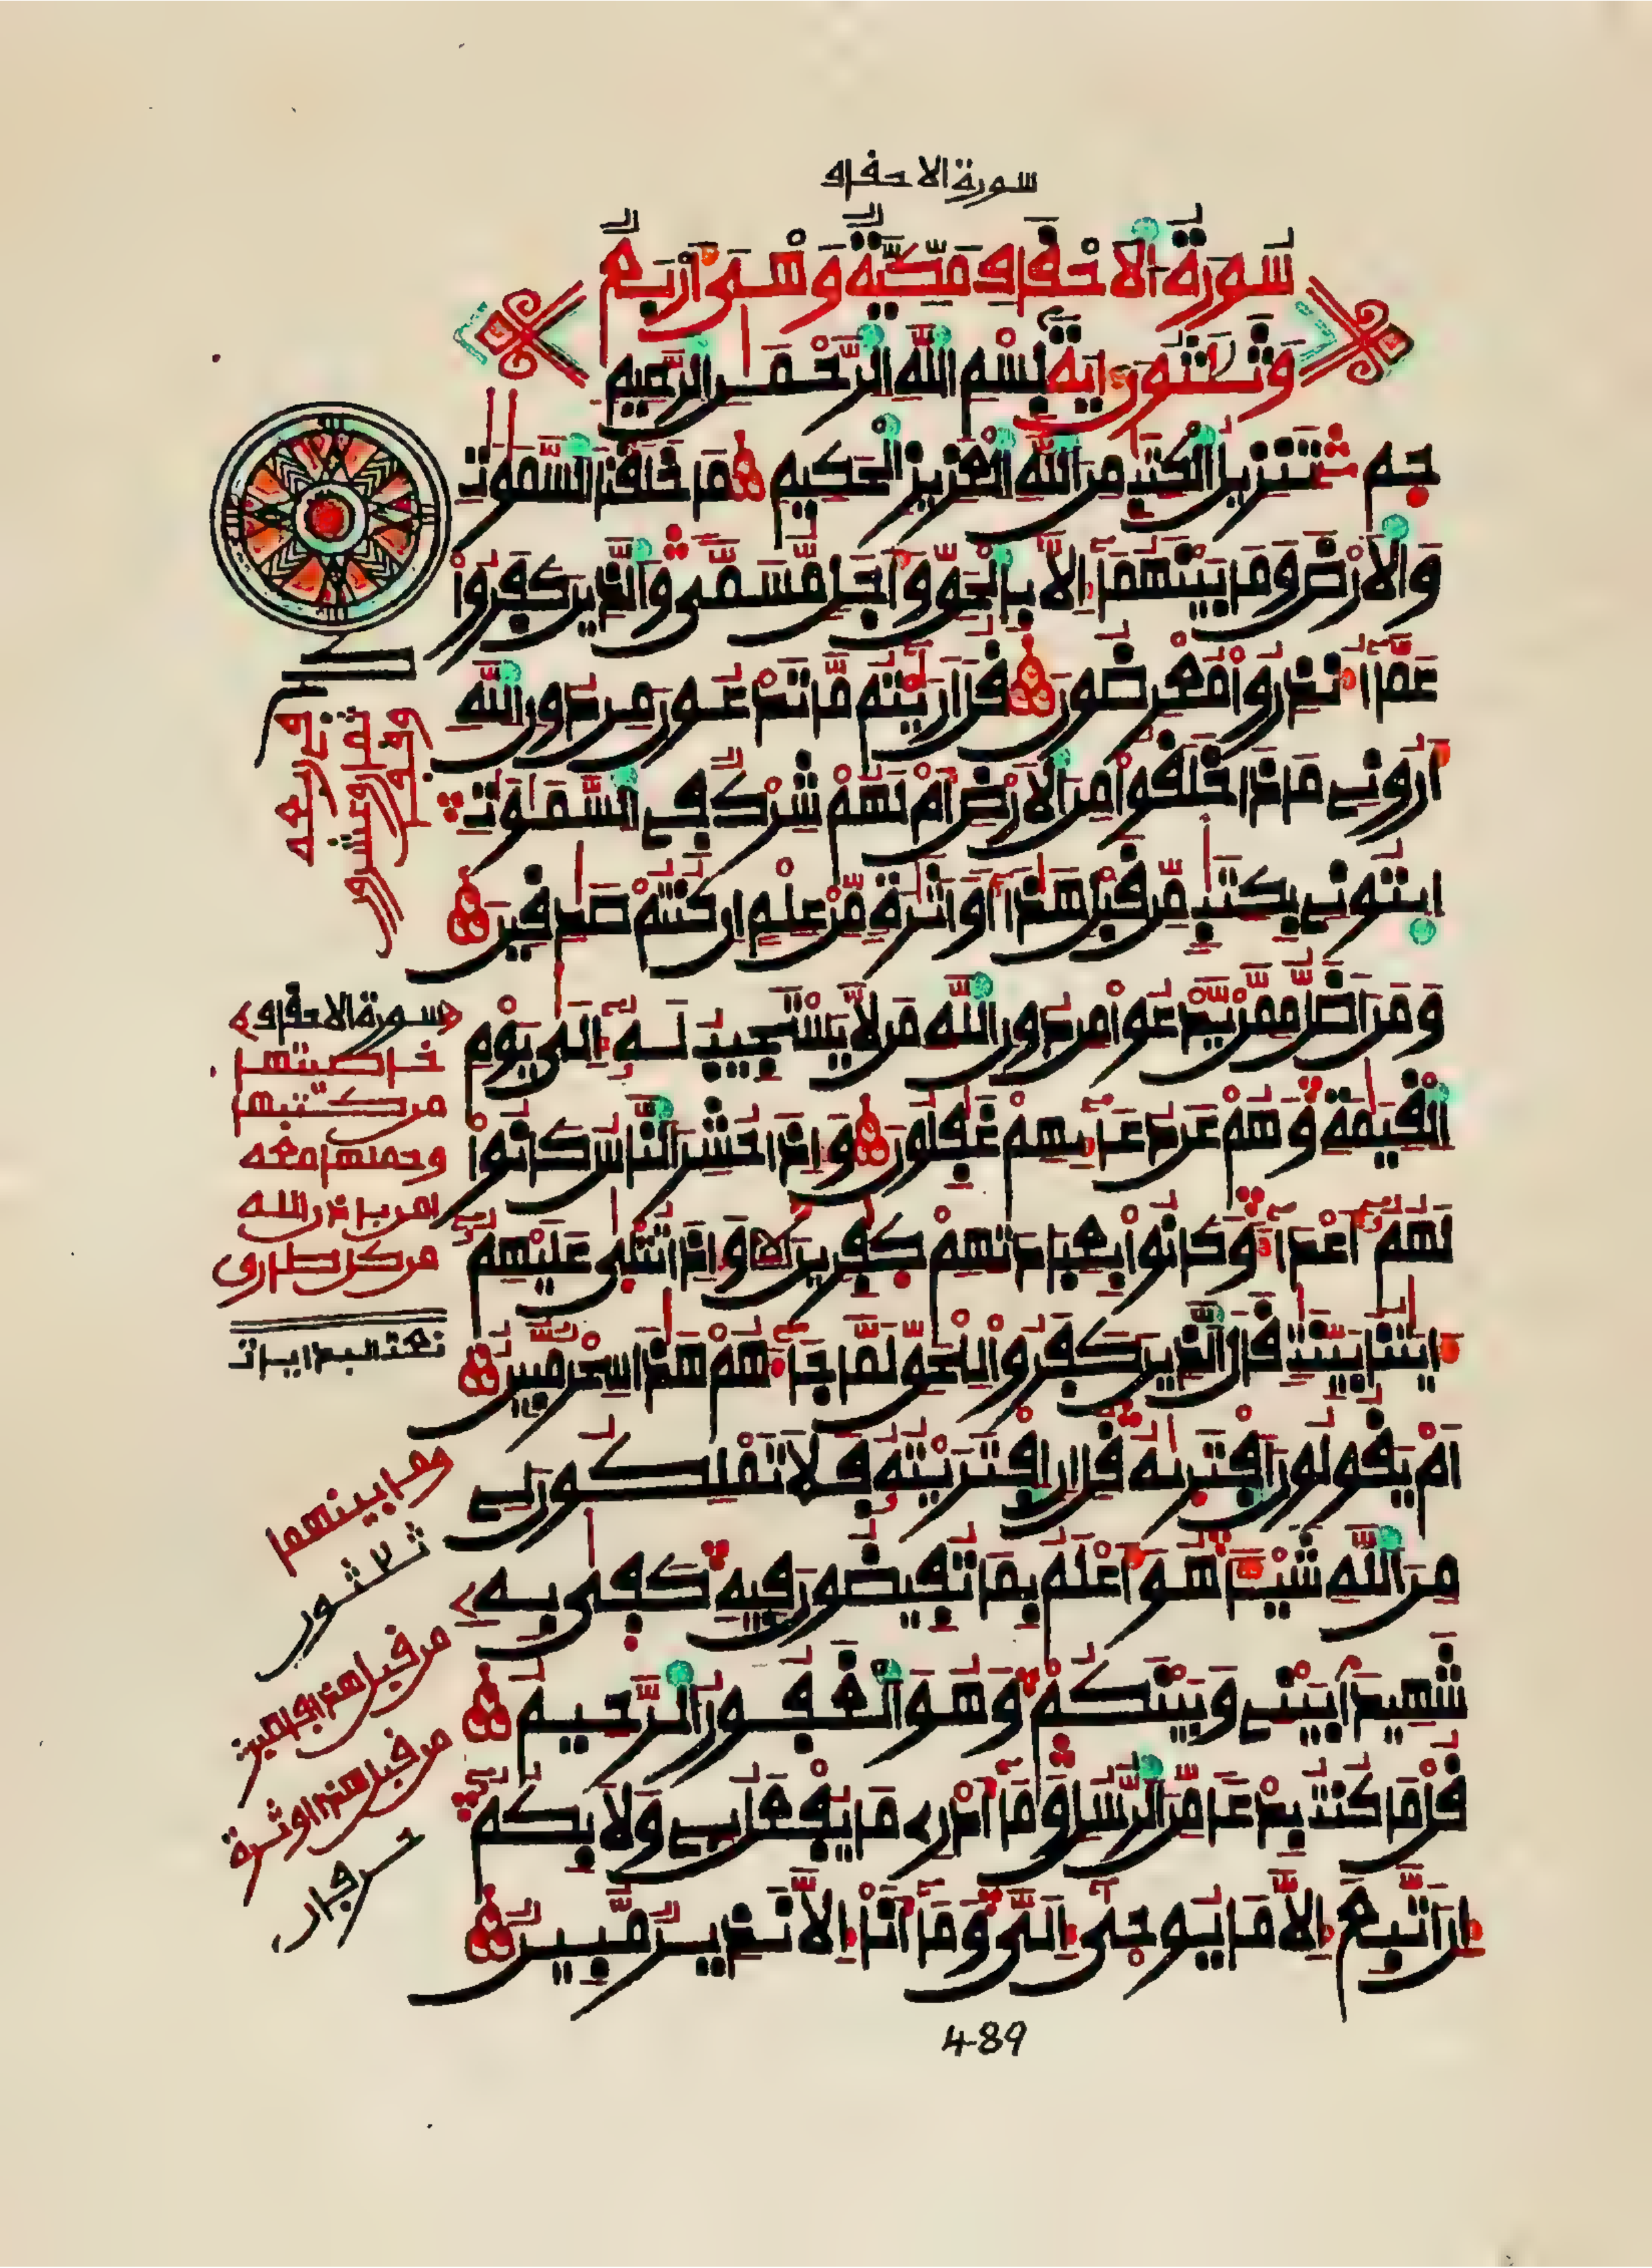 سورة الاحقاف
سُورَةُ الَاحْقَافِ مَكِّيَّةٌ وَهْىَ أَرْبَعٌ
وَثَلَٰثُونَ ءَايَةً بِسْمِ اللَّهِ الرَّحْمَٰنِ الرَّحِيمِ
حم تَنزِيلُ الْكِتَٰبِ مِنَ اللَّهِ الْعَزِيزِ الْحَكِيمِ مَا خَلَقْنَا السَّمَٰوَٰتِ
وَالَارْضَ وَمَا بَيْنَهُمَا إِلَّا بِالْحَقِّ وَأَجَلٍ مُّسَمًّى وَالَّذِينَ كَفَرُوا
عَمَّا أُنذِرُوا مُعْرِضُونَ قُلَ ارَٰيْتُم مَّا تَدْعُونَ مِن دُونِ اللَّهِ
أَرُونِى مَاذَا خَلَقُوا مِنَ الَارْضِ أَمْ لَهُمْ شِرْكٌ فِى السَّمَٰوَٰتِ
ايتُونِى بِكِتَٰبٍ مِّن قَبْلِ هَٰذَا أَوَ اثَٰرَةٍ مِّنْ عِلْمٍ إِن كُنتُمْ صَٰدِقِينَ
وَمَنَ اضَلُّ مِمَّنْ يَّدْعُوا مِن دُونِ اللَّهِ مَن لَّا يَسْتَجِيبُ لَهُ إِلَىٰ يَوْمِ
الْقِيَٰمَةِ وَهُمْ عَن دُعَائِهِمْ غَٰفِلُونَ وَإِذَا حُشِرَ النَّاسُ كَانُوا
لَهُمُ أَعْدَاءً وَكَانُوا بِعِبَادَتِهِمْ كَٰفِرِينَ وَإِذَا تُتْلَىٰ عَلَيْهِمُ
ءَايَٰتُنَا بَيِّنَٰتٍ قَالَ الَّذِينَ كَفَرُوا لِلْحَقِّ لَمَّا جَاءَهُمْ هَٰذَا سِحْرٌ مُّبِينٌ
أَمْ يَقُولُونَ افْتَرَىٰهُ قُلِ انِ افْتَرَيْتُهُ فَلَا تَمْلِكُونَ لِى
مِنَ اللَّهِ شَيْئًا هُوَ أَعْلَمُ بِمَا تُفِيضُونَ فِيهِ كَفَىٰ بِهِ
شَهِيدًا بَيْنِى وَبَيْنَكُمْ وَهُوَ الْغَفُورُ الرَّحِيمُ
قُلْ مَا كُنتُ بِدْعًا مِّنَ الرُّسُلِ وَمَا أَدْرِى مَا يُفْعَلُ بِى وَلَا بِكُمُ
إِنَ اتَّبِعُ إِلَّا مَا يُوحَىٰ إِلَىَّ وَمَا أَنَا إِلَّا نَذِيرٌ مُّبِينٌ
489
سورة الاحقاف
خاصيتها
من كتبها
وحملها معه
امن باذن الله
من كل طارق
وما بينهما
من قبل هذا
من قبل هذا اوثرة